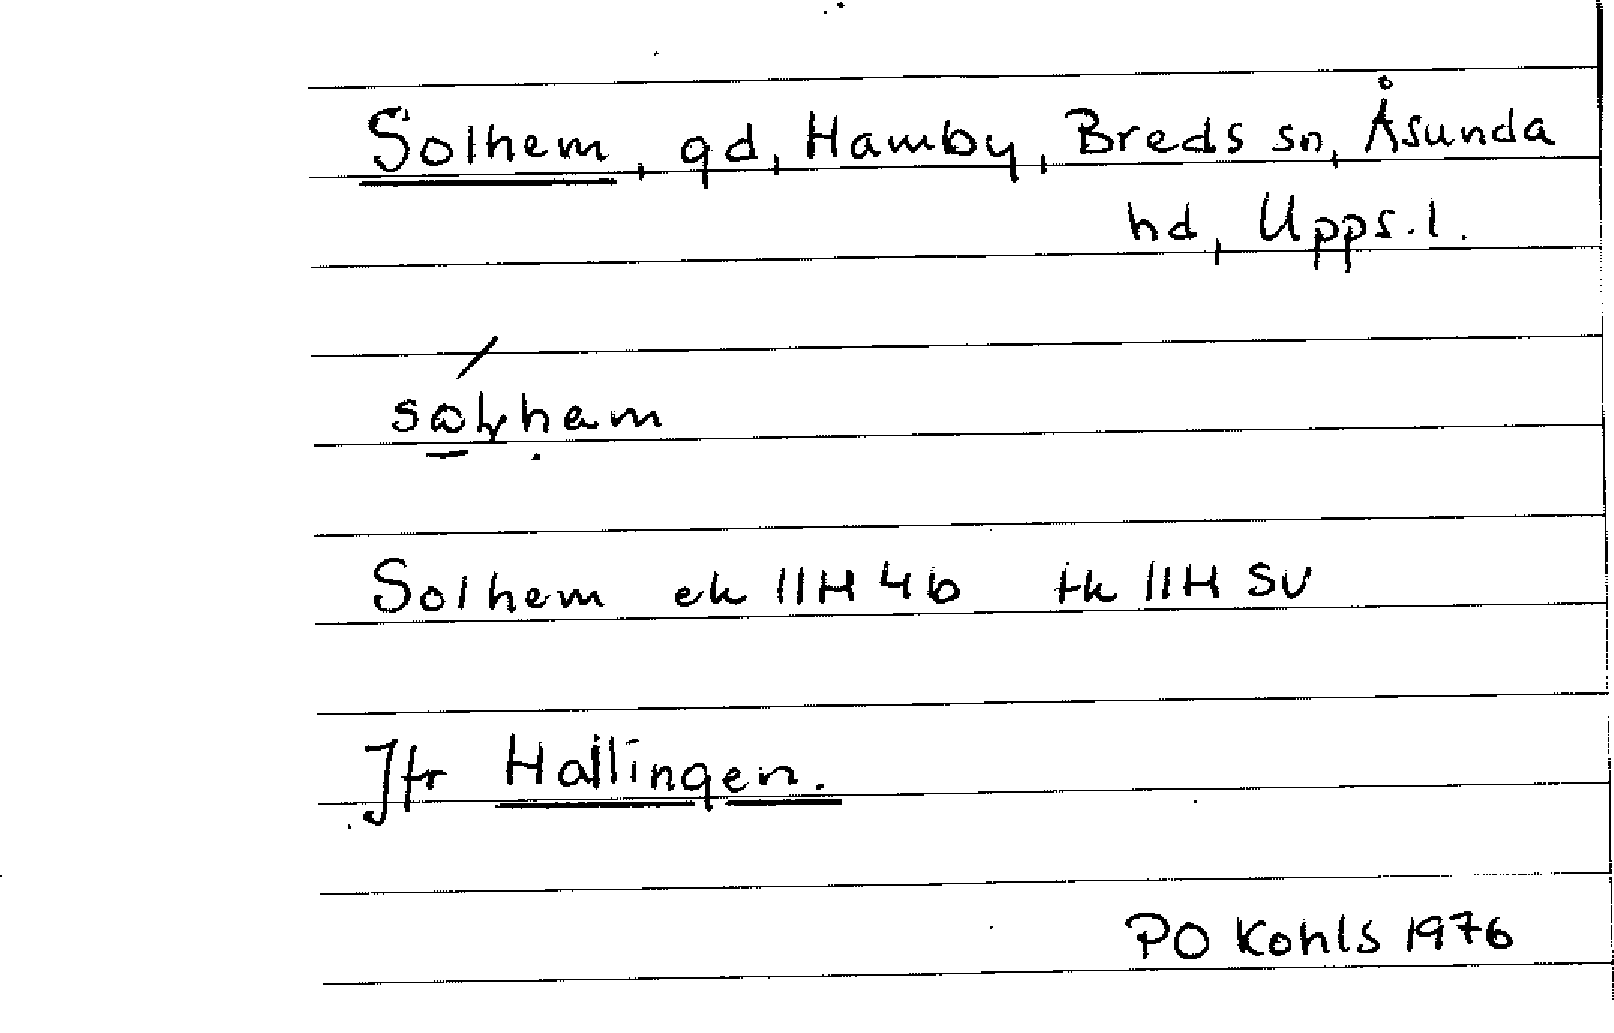 Solhem, gd, Hamby, Breds sn, Åsunda
hd, Upps.l.
Solhem ek 11H 4b tk 11H SV
Jfr Hallingen.
PO Kohls 1976